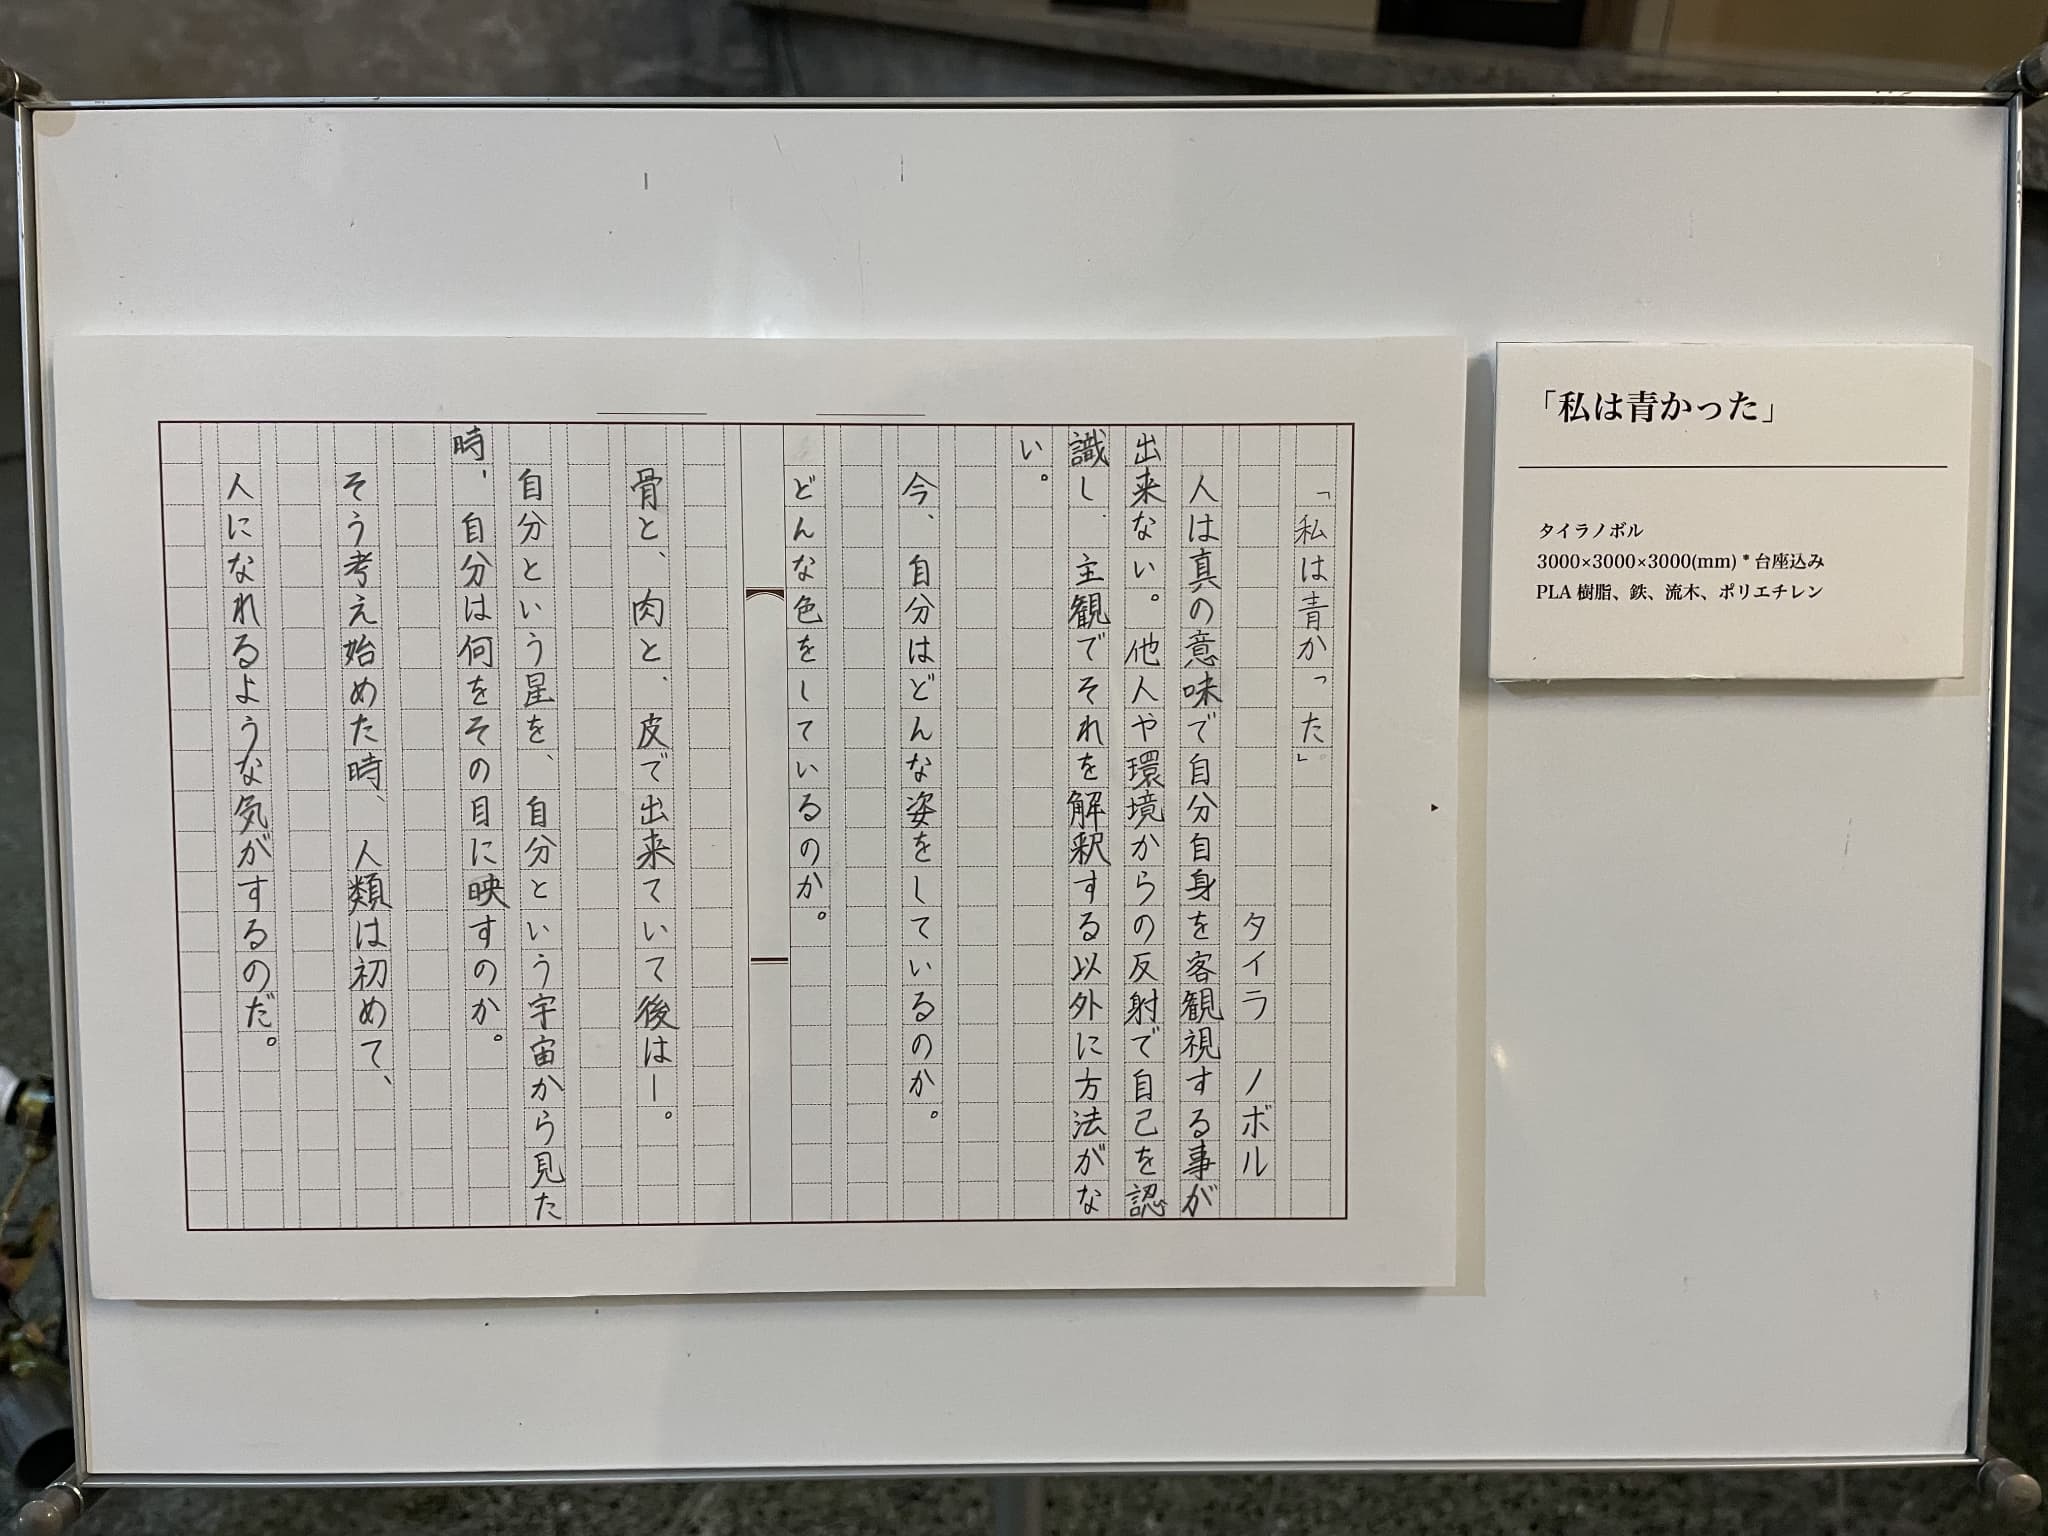 「私は青かった」
タイラ ノボル
人は真の意味で自分自身を客観視する事が
出来ない。他人や環境からの反射で自己を認
識し、主観でそれを解釈する以外に方法がな
い。
今、自分はどんな姿をしているのか。
どんな色をしているのか。
骨と、肉と、皮で出来ていて後はー。
自分という星を、自分という宇宙から見た
時、自分は何をその目に映すのか。
そう考え始めた時、人類は初めて、
人になれるような気がするのだ。
「私は青かった」
タイラノボル
3000×3000×3000(mm) * 台座込み
PLA 樹脂、鉄、流木、ポリエチレン